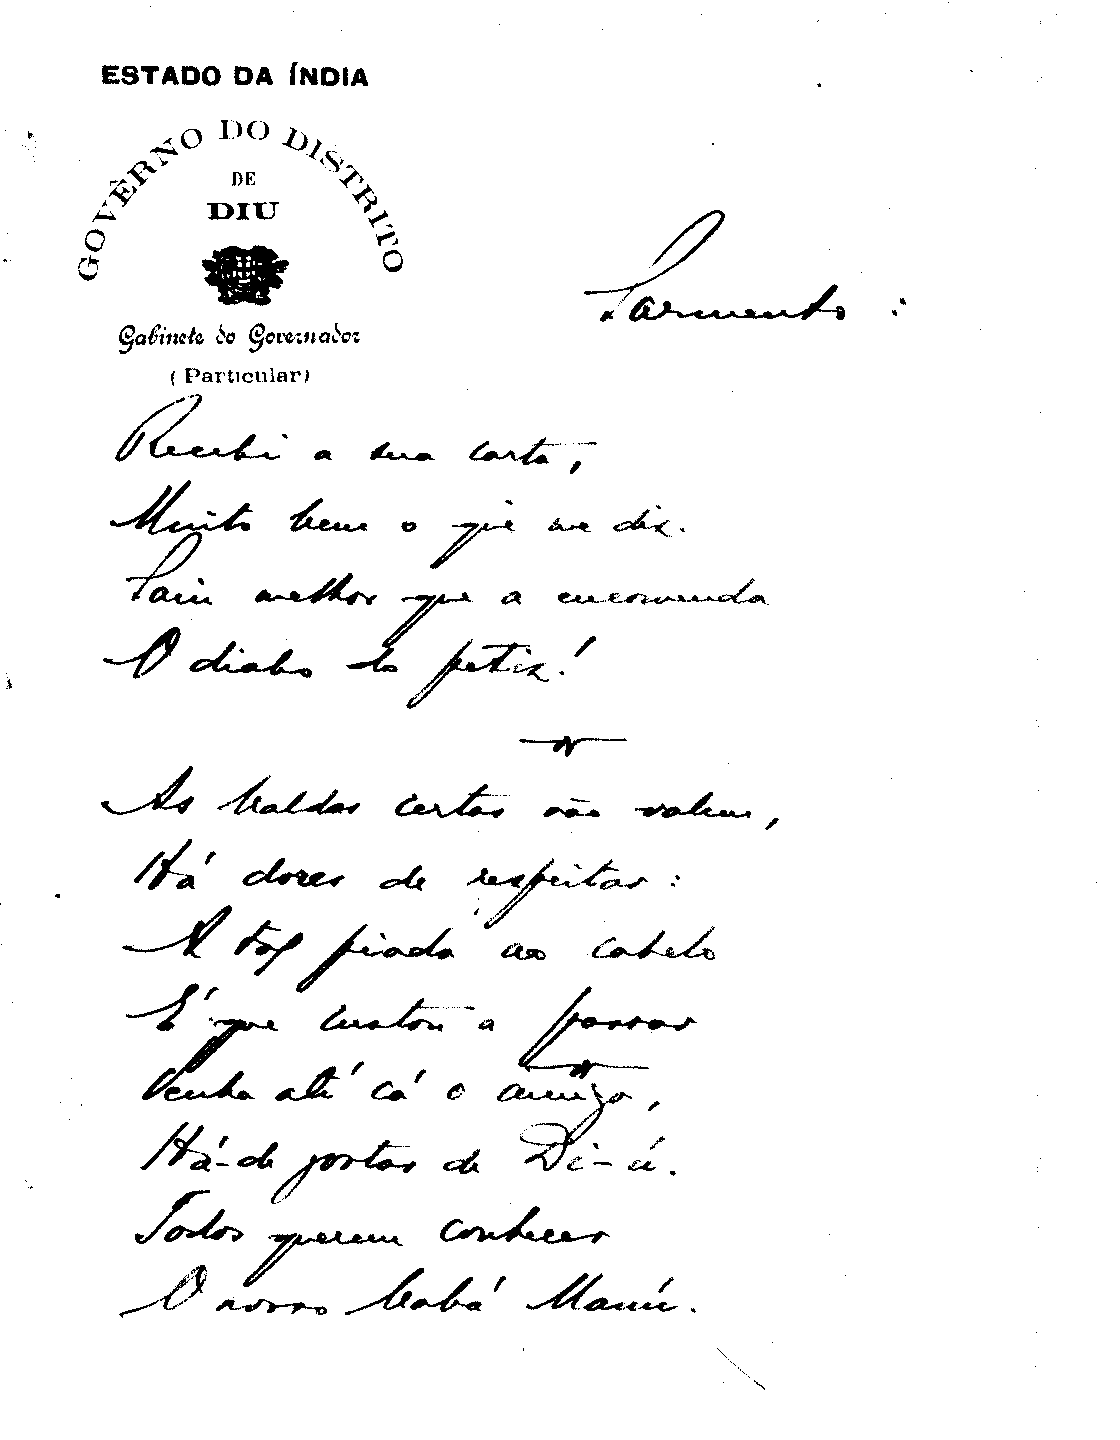 ESTADO DA ÍNDIA
GOVÊRNO DO DISTRITO
DE
DIU
Gabinete do Governador
(Particular)
Sarmento :
Recebi a sua carta,
Muito bem o que me diz.
Saiu melhor que a encomenda
O diabo do petiz!
As baldas certas não valem,
Há dores de respeitar:
A piada ao cabelo
É que custou a passar
Venha até cá o amigo,
Há-de gostar de Di-ú.
Todos querem conhecer
O nosso Babá Manú.